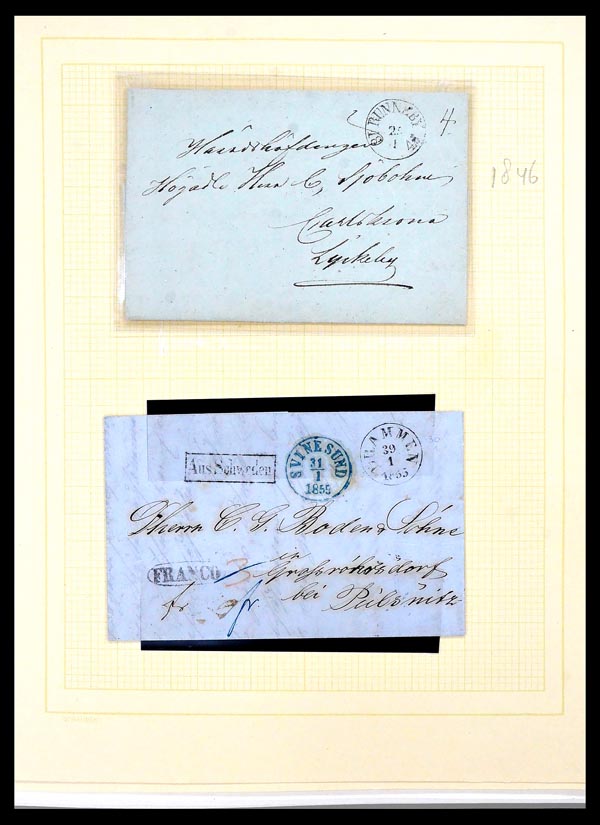 RUNNEBY
4
25
1
1846
Häradshöfdingen
Högädle Herr C, Sjöbohm
Carlskrona
Lyckeby
Aus Schweden
SVINESUND
31
1
1855
DRAMMEN
29
1
1855
Herrn C. G. Boden & Söhne
in
FRANCO
Grossröhrsdorf
fr
fr
bei Pulsnitz